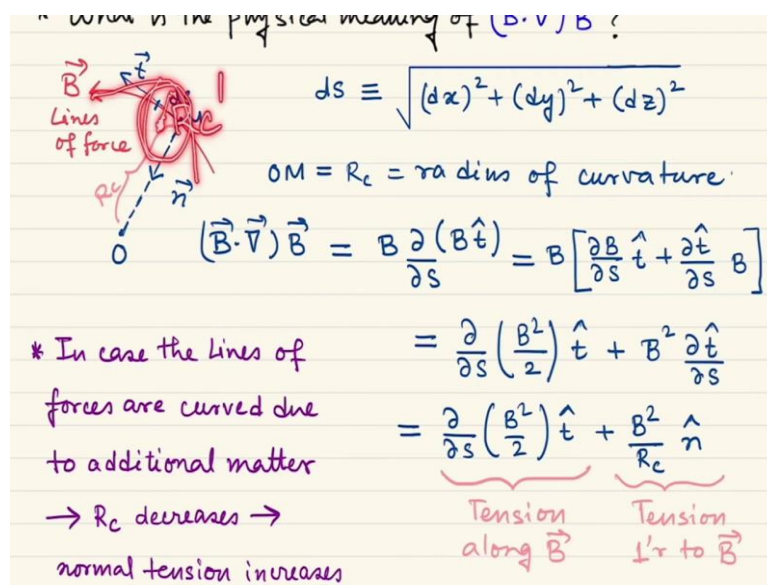 * What is the physical meaning of (B⃗·∇⃗) B⃗ ?
B⃗
t⃗
Lines
of force
Rc
Rc
n⃗
O
ds ≡ √((dx)² + (dy)² + (dz)²)
OM = Rc = radius of curvature.
(B⃗·∇⃗)B⃗ = B ∂(Bt̂)/∂s = B[∂B/∂s t̂ + ∂t̂/∂s B]
= ∂/∂s (B²/2) t̂ + B² ∂t̂/∂s
= ∂/∂s (B²/2) t̂ + B²/Rc n̂
Tension
along B⃗
Tension
⊥'r to B⃗
* In case the Lines of
forces are curved due
to additional matter
→ Rc decreases →
normal tension increases